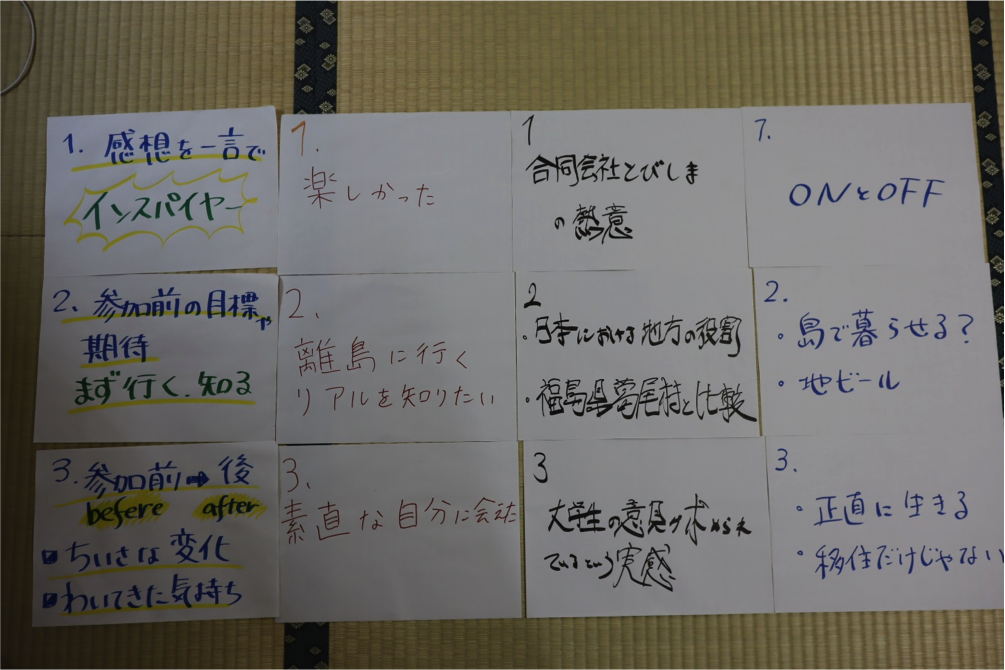 1. 感想を一言で
インスパイヤー
2. 参加前の目標や
期待
まず行く、知る
3. 参加前➡後
befere after
ちいさな変化
わいてきた気持ち
1.
楽しかった
2.
離島に行く
リアルを知りたい
3.
素直な自分に会社
1
合同会社とびしま
の熱意
2
・日本における地方の役割
・福島県葛尾村と比較
3
大学生の意見が求められ
ているという実感
1.
ONとOFF
2.
・島で暮らせる?
・地ビール
3.
・正直に生きる
・移住だけじゃない